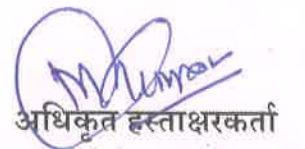 अधिकृत हस्ताक्षरकर्ता